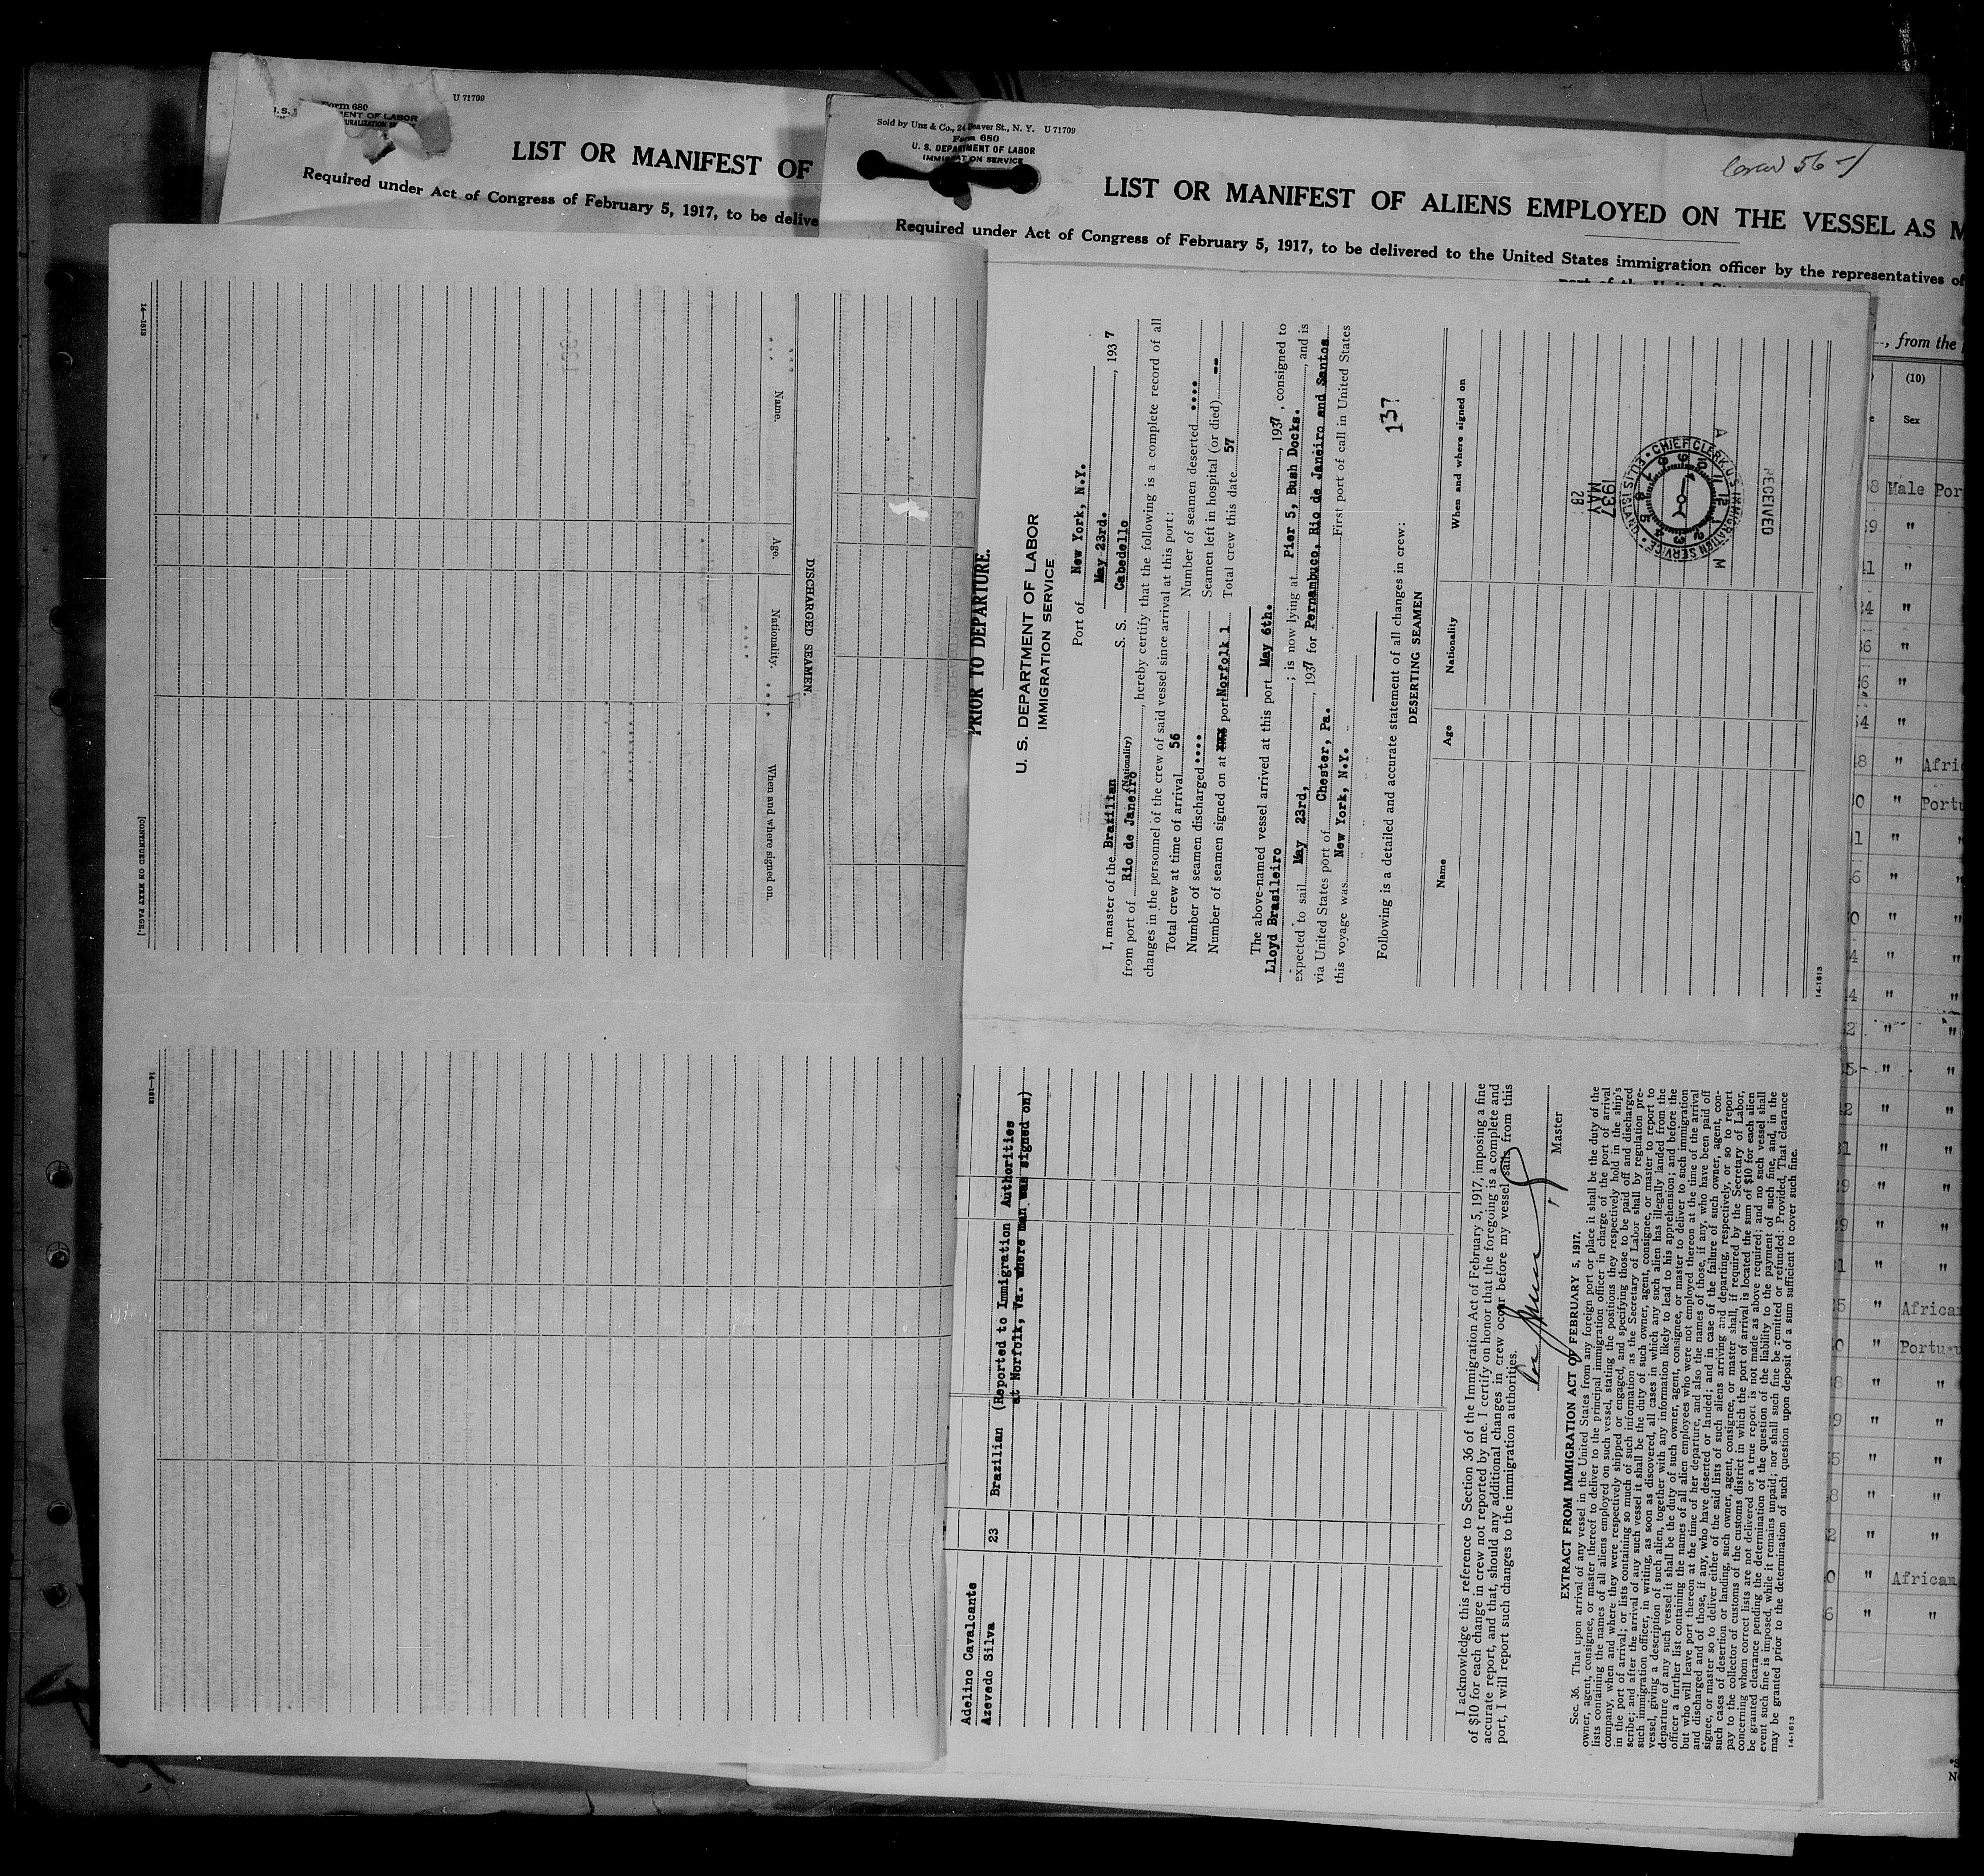 Form 680
U 71709
LIST OR MANIFEST OF
Required under Act of Congress of February 5, 1917, to be delive
Sold by Unz & Co., 24 Beaver St., N. Y. U 71709
Form 680
U. S. DEPARTMENT OF LABOR
IMMIGRATION SERVICE
LIST OR MANIFEST OF ALIENS EMPLOYED ON THE VESSEL AS M
Required under Act of Congress of February 5, 1917, to be delivered to the United States immigration officer by the representatives of
, from the
(10)
Sex
Male Por
Afric
Portu
African
Portugu
African
14—1613
DISCHARGED SEAMEN.
Name. Age. Nationality. When and where signed on.
[CONTINUED ON NEXT PAGE.]
14—1613
PRIOR TO DEPARTURE.
U. S. DEPARTMENT OF LABOR
IMMIGRATION SERVICE
Port of New York, N.Y.
May 23rd. , 1937
I, master of the Brazilian S. S. Cabedello
(Nationality)
from port of Rio de Janeiro , hereby certify that the following is a complete record of all
changes in the personnel of the crew of said vessel since arrival at this port:
Total crew at time of arrival 56 Number of seamen deserted ....
Number of seamen discharged .... Seamen left in hospital (or died) --
Number of seamen signed on at this port Norfolk 1 Total crew this date 57
The above-named vessel arrived at this port May 6th. , 1937, consigned to
Lloyd Brasileiro ; is now lying at Pier 5, Bush Docks. , and is
expected to sail May 23rd, , 1937 for Pernambuco, Rio de Janeiro and Santos
via United States port of Chester, Pa. First port of call in United States
this voyage was New York, N.Y.
Following is a detailed and accurate statement of all changes in crew:
137
DESERTING SEAMEN
Name Age Nationality When and where signed on
RECEIVED
CHIEF CLERK, U.S. IMMIGRATION SERVICE • ELLIS ISLAND •
A M
1937
MAY
28
14-1613
Adelino Cavalcante
Azevedo Silva 23 Brazilian (Reported to Immigration Authorities
at Norfolk, Va. where man was signed on)
I acknowledge this reference to Section 36 of the Immigration Act of February 5, 1917, imposing a fine
of $10 for each change in crew not reported by me. I certify on honor that the foregoing is a complete and
accurate report, and that, should any additional changes in crew occur before my vessel sails from this
port, I will report such changes to the immigration authorities.
Master
EXTRACT FROM IMMIGRATION ACT OF FEBRUARY 5, 1917.
Sec. 36. That upon arrival of any vessel in the United States from any foreign port or place it shall be the duty of the
owner, agent, consignee, or master thereof to deliver to the principal immigration officer in charge of the port of arrival
lists containing the names of all aliens employed on such vessel, stating the positions they respectively hold in the ship's
company, when and where they were respectively shipped or engaged, and specifying those to be paid off and discharged
in the port of arrival; or lists containing so much of such information as the Secretary of Labor shall by regulation pre-
scribe; and after the arrival of any such vessel it shall be the duty of such owner, agent, consignee, or master to report to
such immigration officer, in writing, as soon as discovered, all cases in which any such alien has illegally landed from the
vessel, giving a description of such alien, together with any information likely to lead to his apprehension; and before the
departure of any such vessel it shall be the duty of such owner, agent, consignee, or master to deliver to such immigration
officer a further list containing the names of all alien employees who were not employed thereon at the time of the arrival
but who will leave port thereon at the time of her departure, and also the names of those, if any, who have been paid off
and discharged and of those, if any, who have deserted or landed; and in case of the failure of such owner, agent, con-
signee, or master so to deliver either of the said lists of such aliens arriving and departing, respectively, or so to report
such cases of desertion or landing, such owner, agent, consignee, or master shall, if required by the Secretary of Labor,
pay to the collector of customs of the customs district in which the port of arrival is located the sum of $10 for each alien
concerning whom correct lists are not delivered or a true report is not made as above required; and no such vessel shall
be granted clearance pending the determination of the question of the liability to the payment of such fine, and, in the
event such fine is imposed, while it remains unpaid; nor shall such fine be remitted or refunded: Provided, That clearance
may be granted prior to the determination of such question upon deposit of a sum sufficient to cover such fine.
14-1613